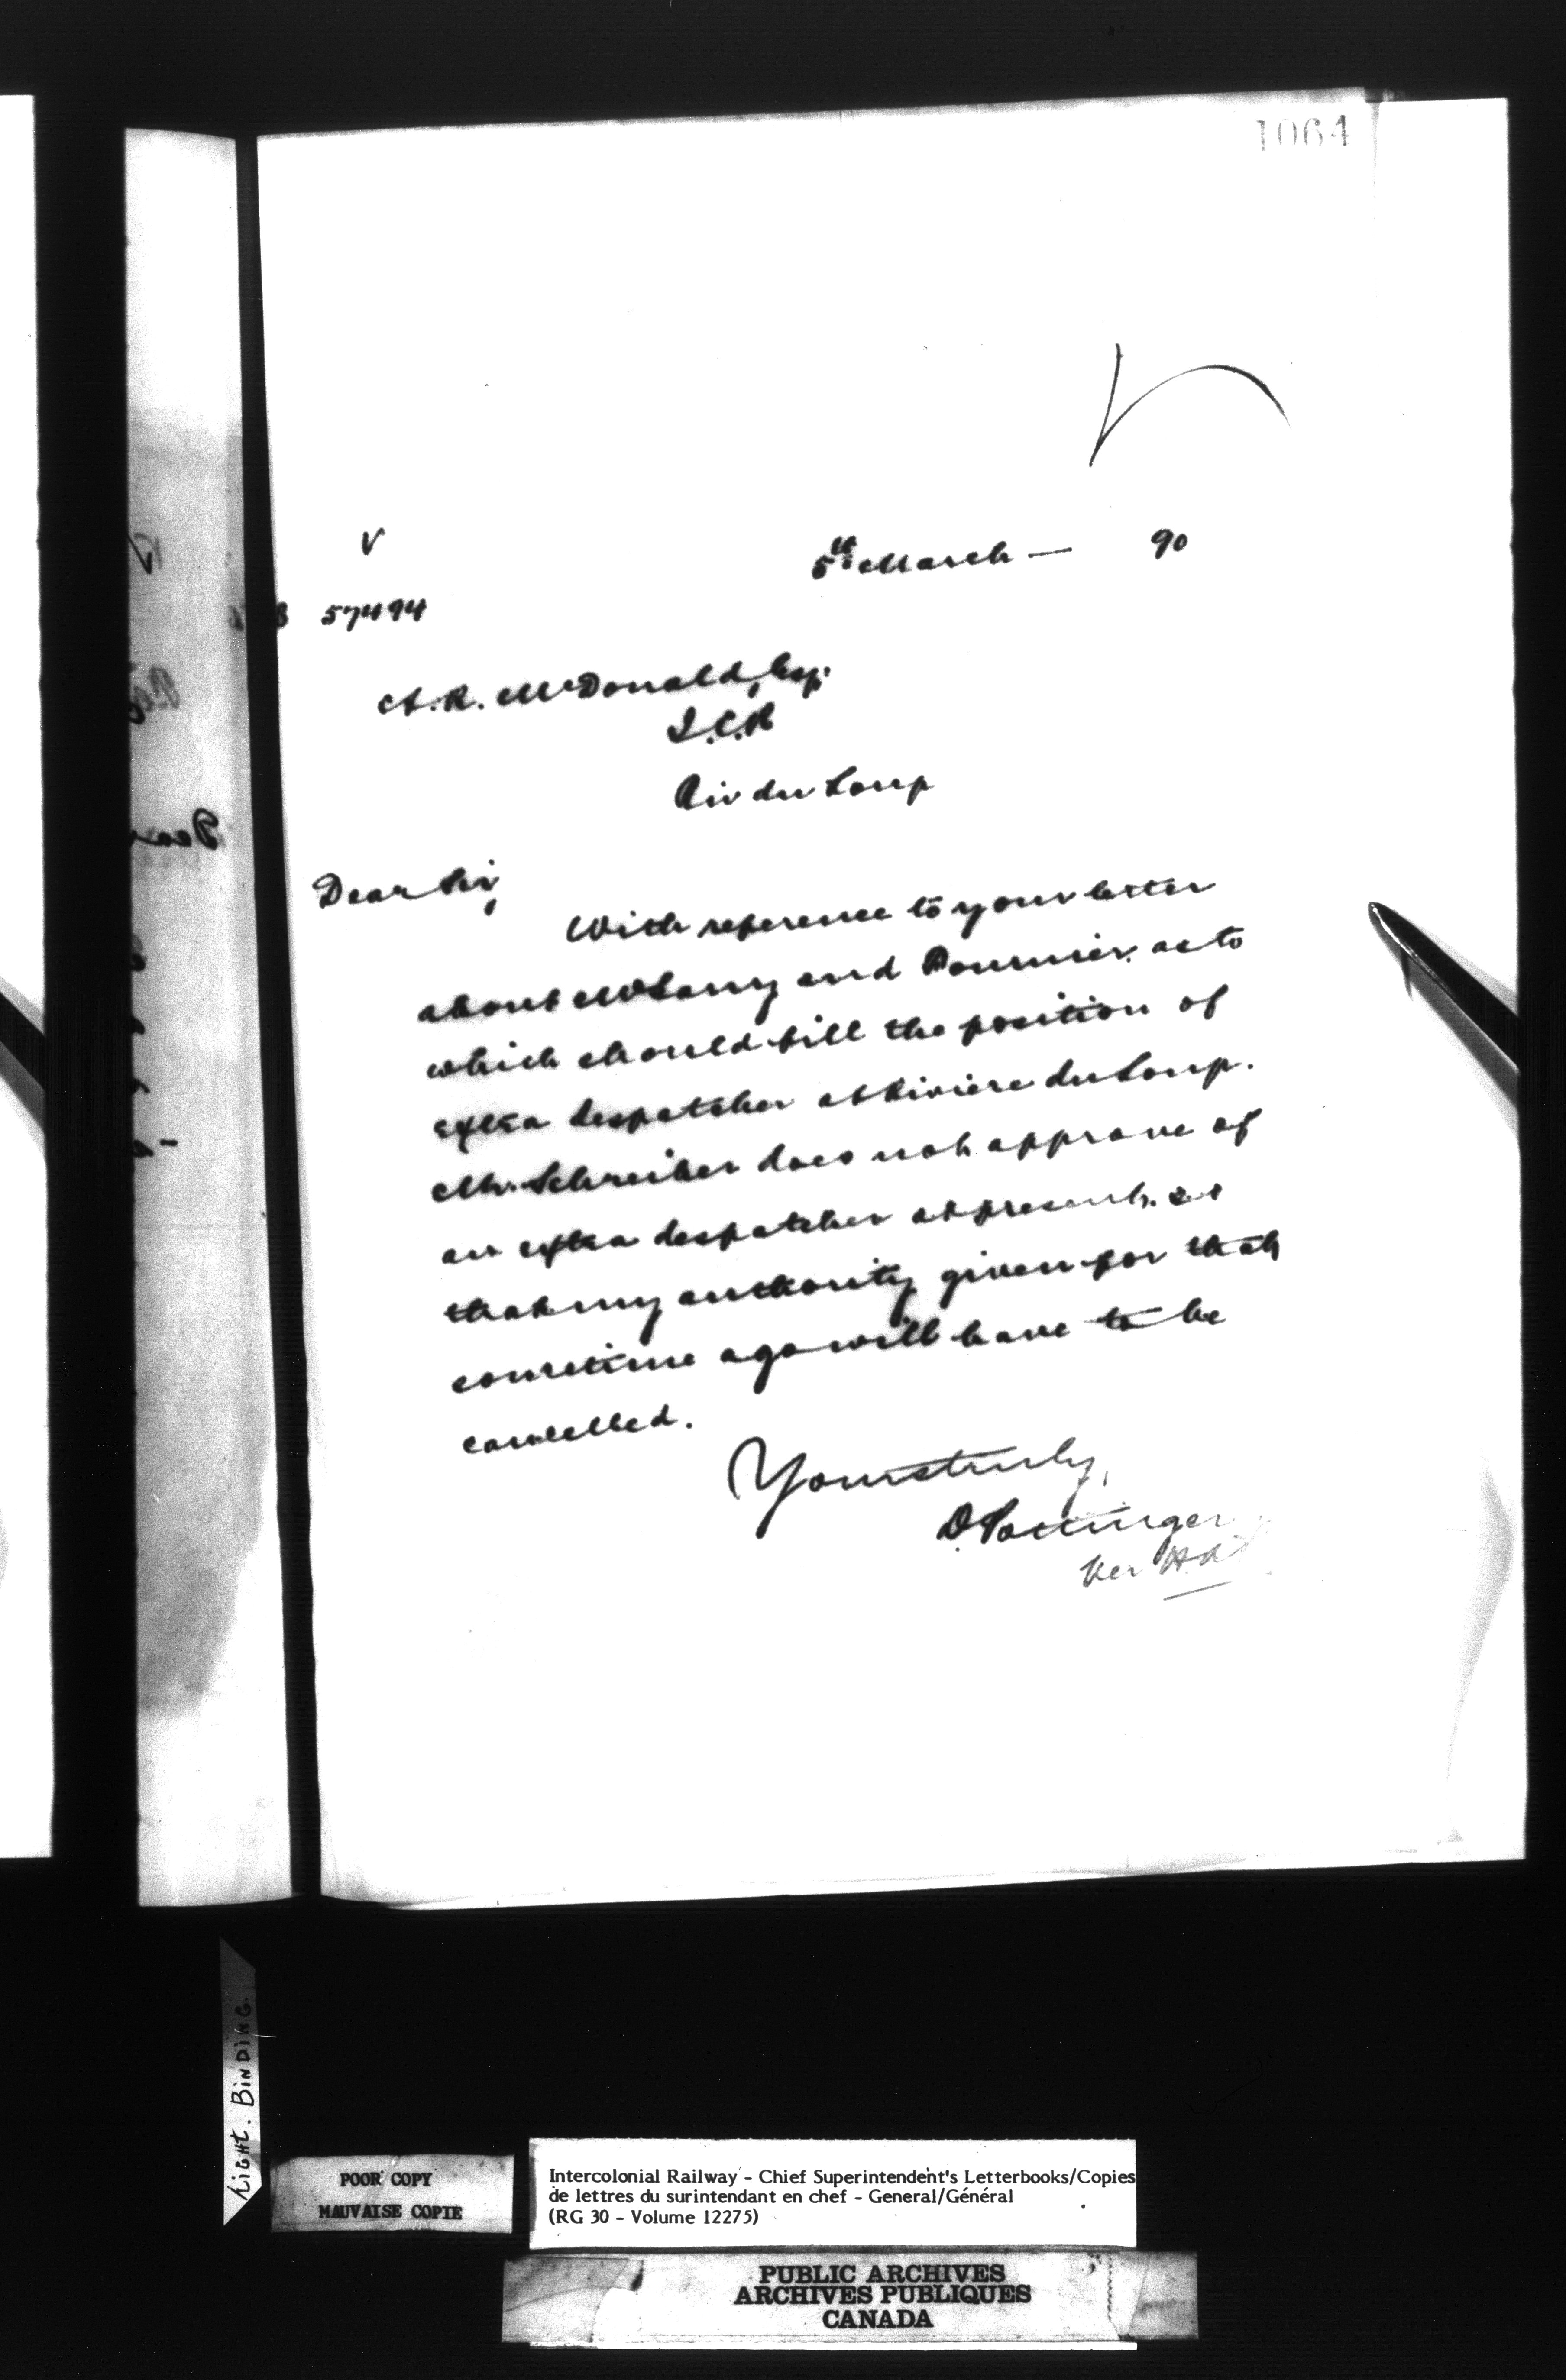 1064
V
5th March — 90
57494
A. R. McDonald, Esq.
I.C.R
Riv du Loup
Dear Sir,
With reference to your letter
about and Fournier. as to
which should fill the position of
extra despatcher at Riviere du Loup.
Mr. Schreiber does not approve of
an extra despatcher at present. so
that my authority given for that
sometime ago will have to be
cancelled.
Yours truly,
D. Pottinger
Per
LIGHT. BINDING.
POOR COPY
MAUVAISE COPIE
Intercolonial Railway - Chief Superintendent's Letterbooks/Copies
de lettres du surintendant en chef - General/Général
(RG 30 - Volume 12275)
PUBLIC ARCHIVES
ARCHIVES PUBLIQUES
CANADA